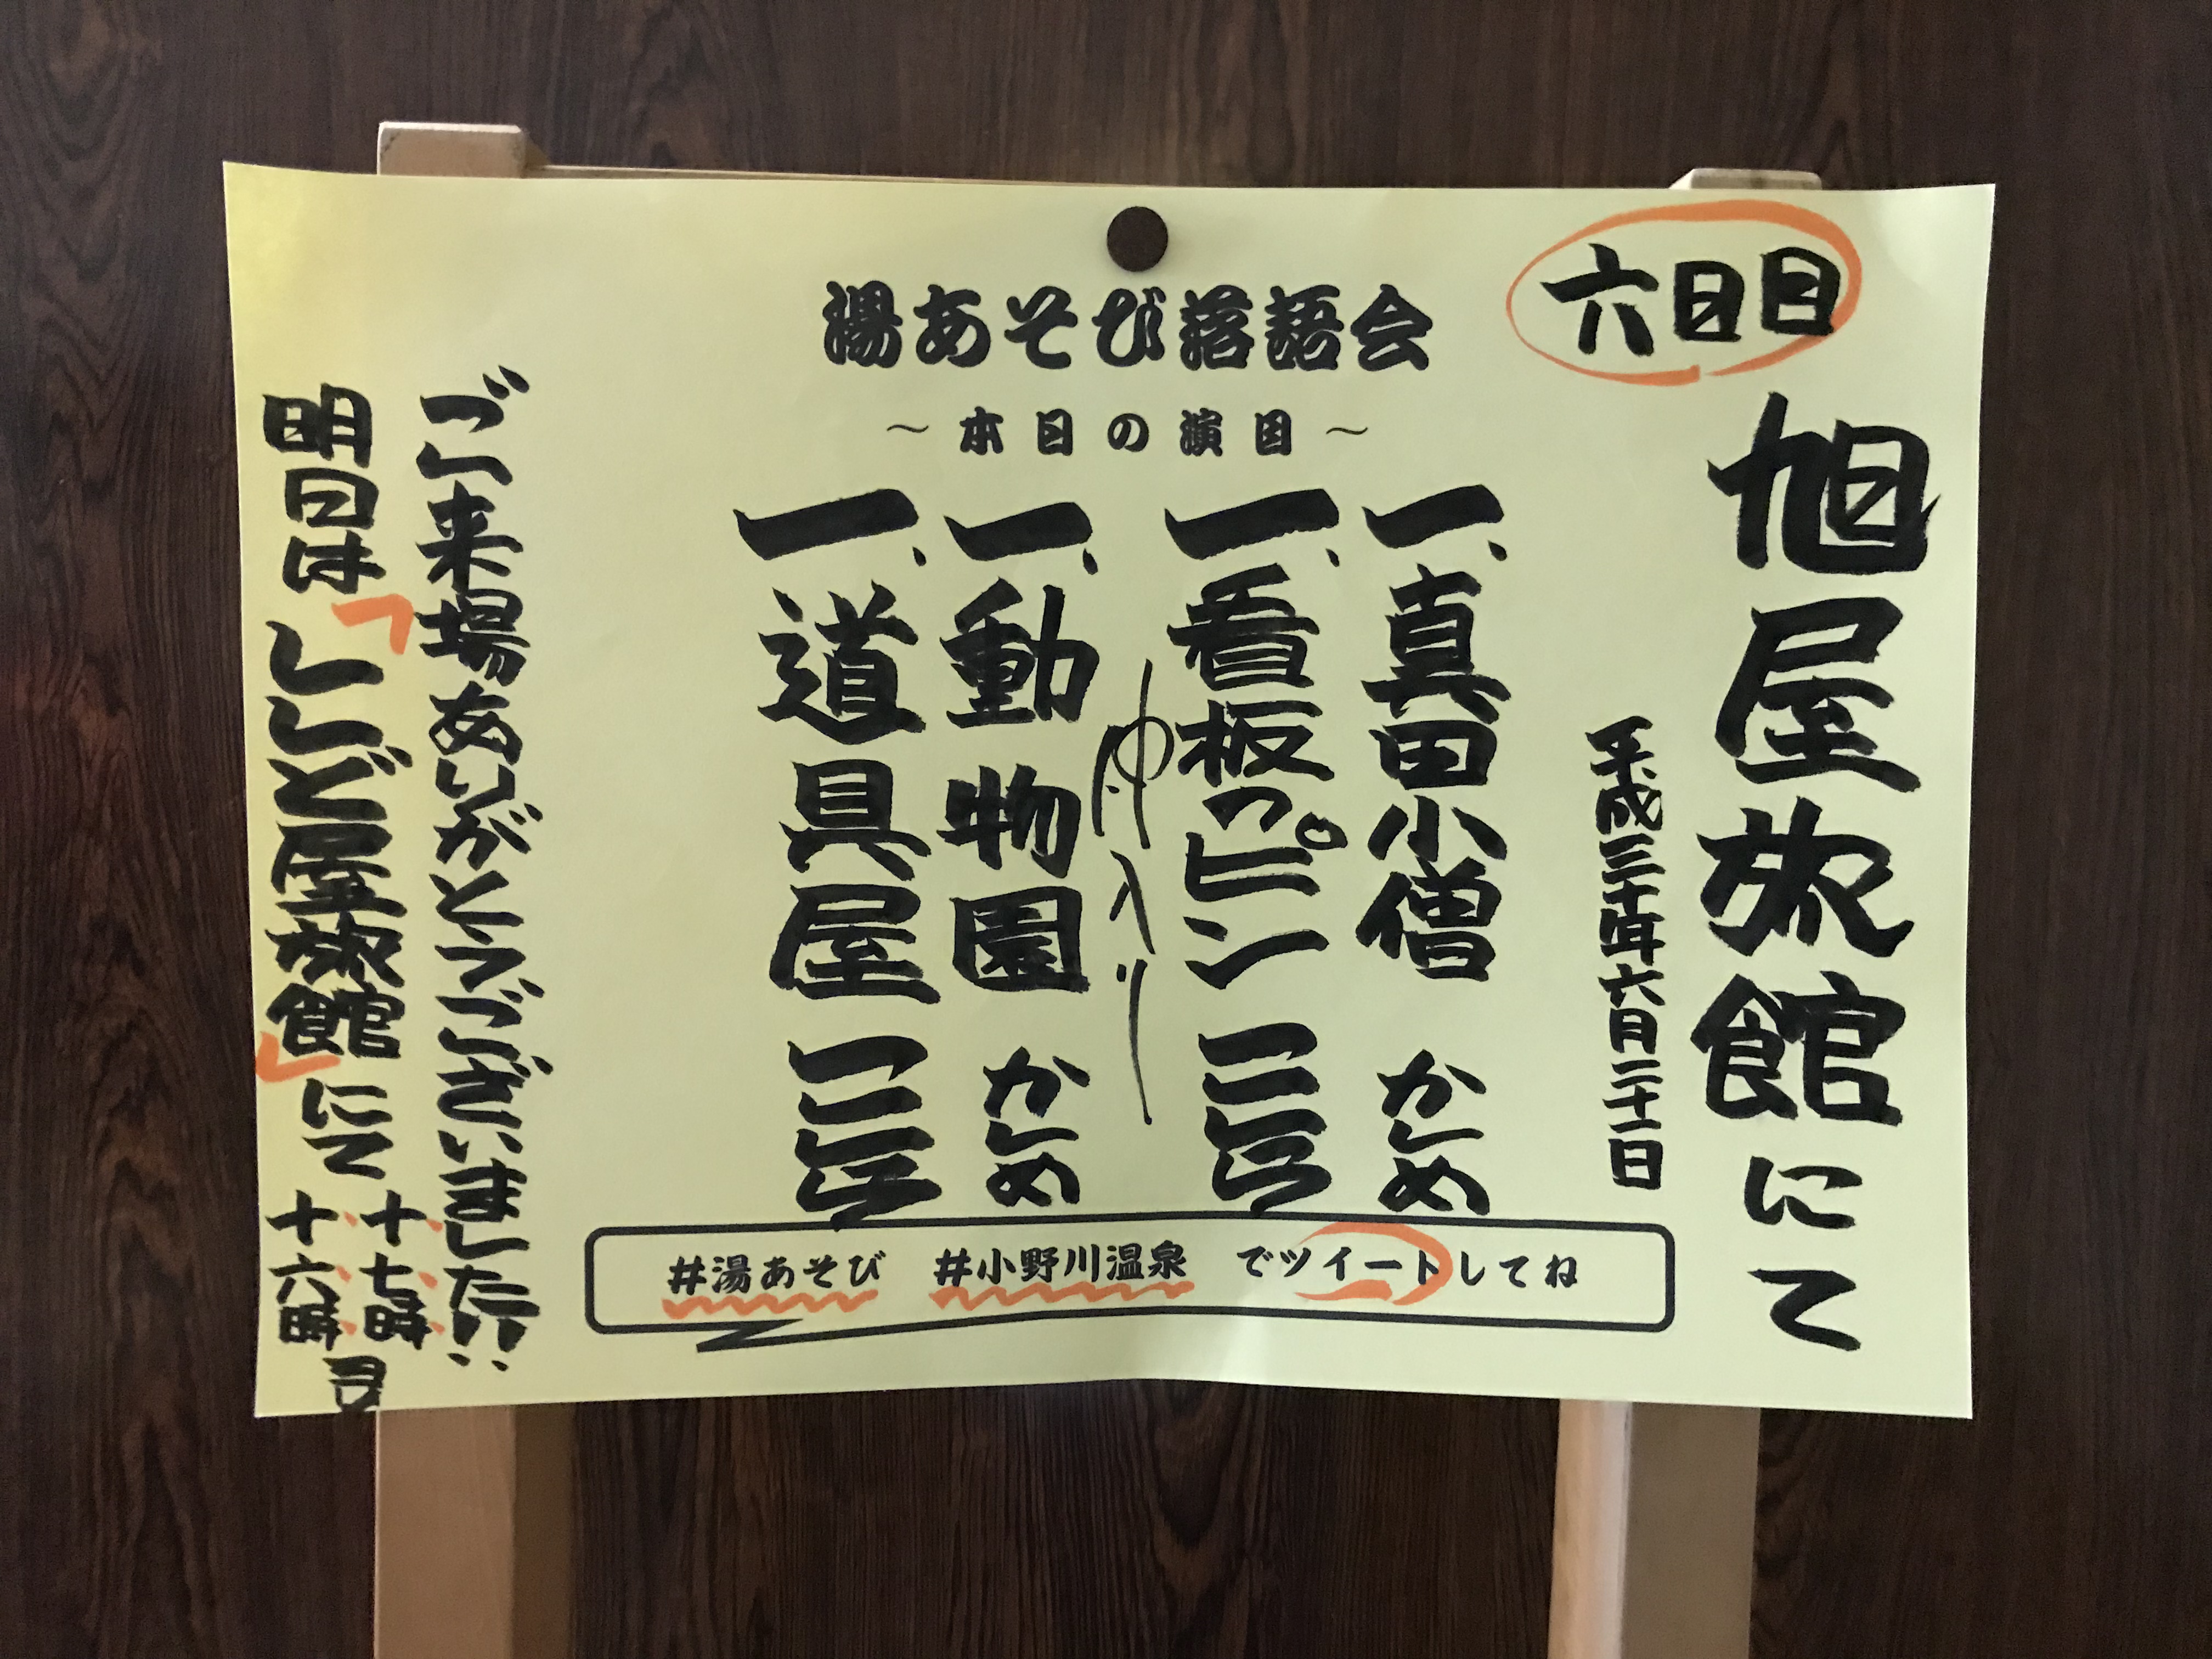 六日目
湯あそび落語会
～本日の演目～
旭屋旅館にて
平成三十年六月二十一日
一、真田小僧 かしめ
一、看板のピン こしら
仲入り
一、動物園 かしめ
一、道具屋 こしら
ご来場ありがとうございました!!
明日は「ししど屋旅館」にて
十七時
十六時
#湯あそび #小野川温泉 でツイートしてね